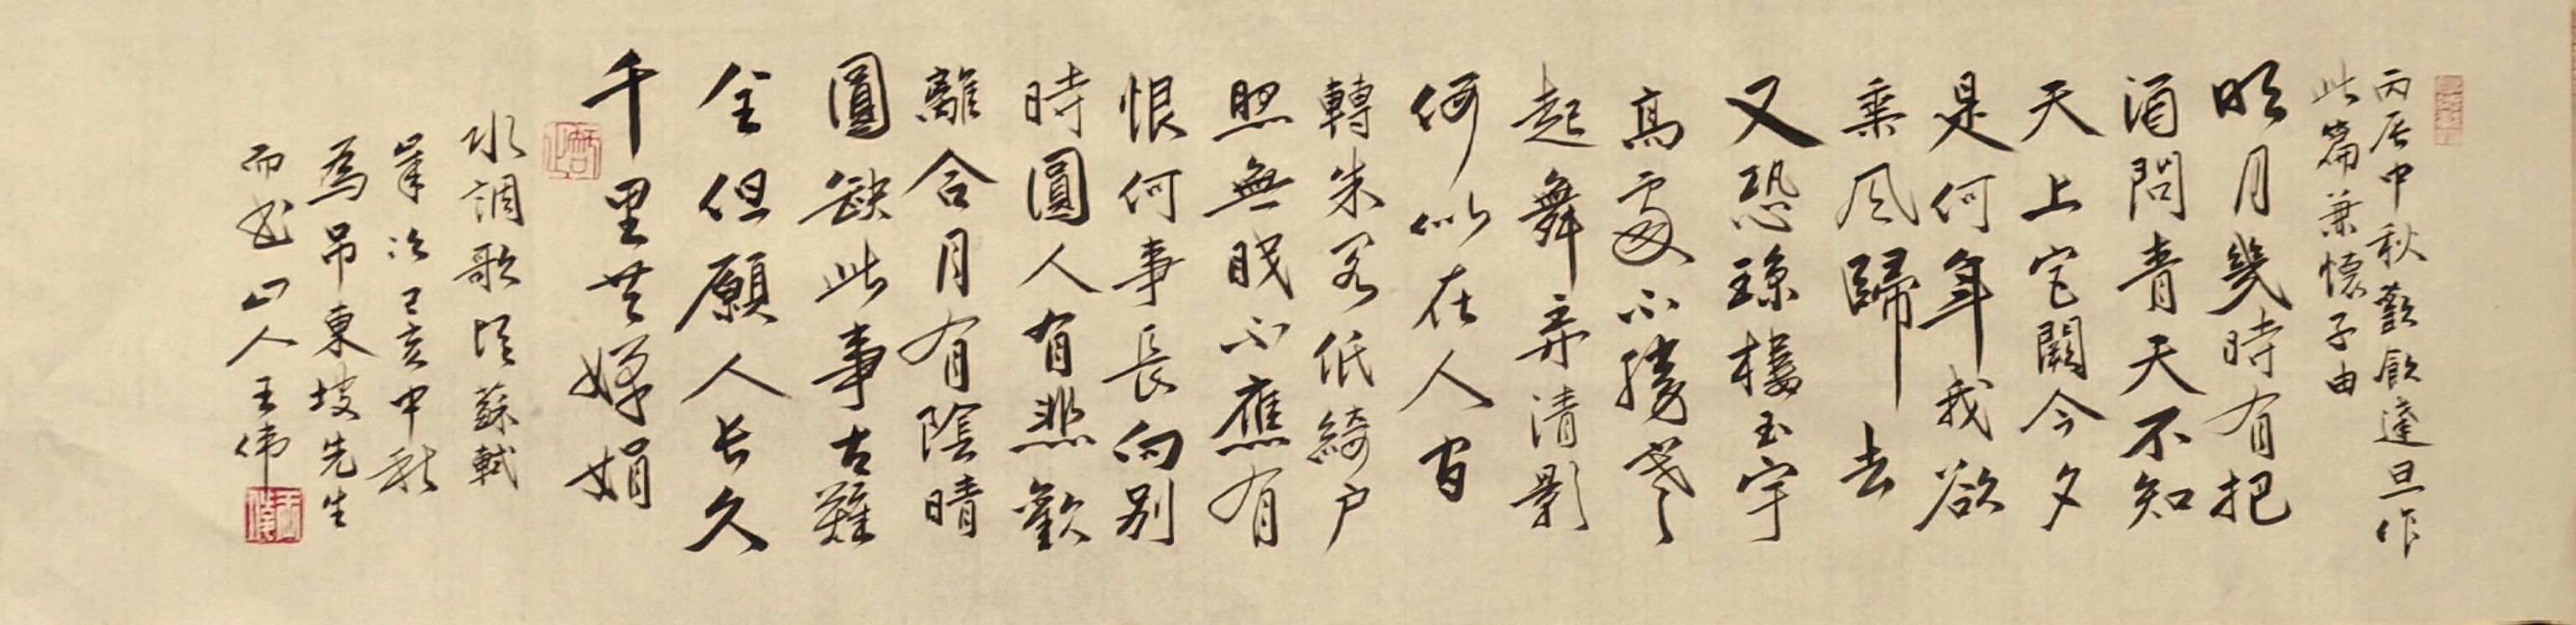 丙辰中秋歡飲達旦作
此篇兼懷子由
明月幾時有把
酒問青天不知
天上宮闕今夕
是何年我欲
乘风歸去
又恐瓊樓玉宇
高處不勝寒
起舞弄清影
何似在人間
轉朱閣低綺户
照無眠不應有
恨何事長向别
時圓人有悲歡
離合月有陰晴
圓缺此事古難
全但願人長久
千里共嬋娟
水調歌頭蘇軾
歲次己亥中秋
為吊東坡先生
而書山人王偉
王偉